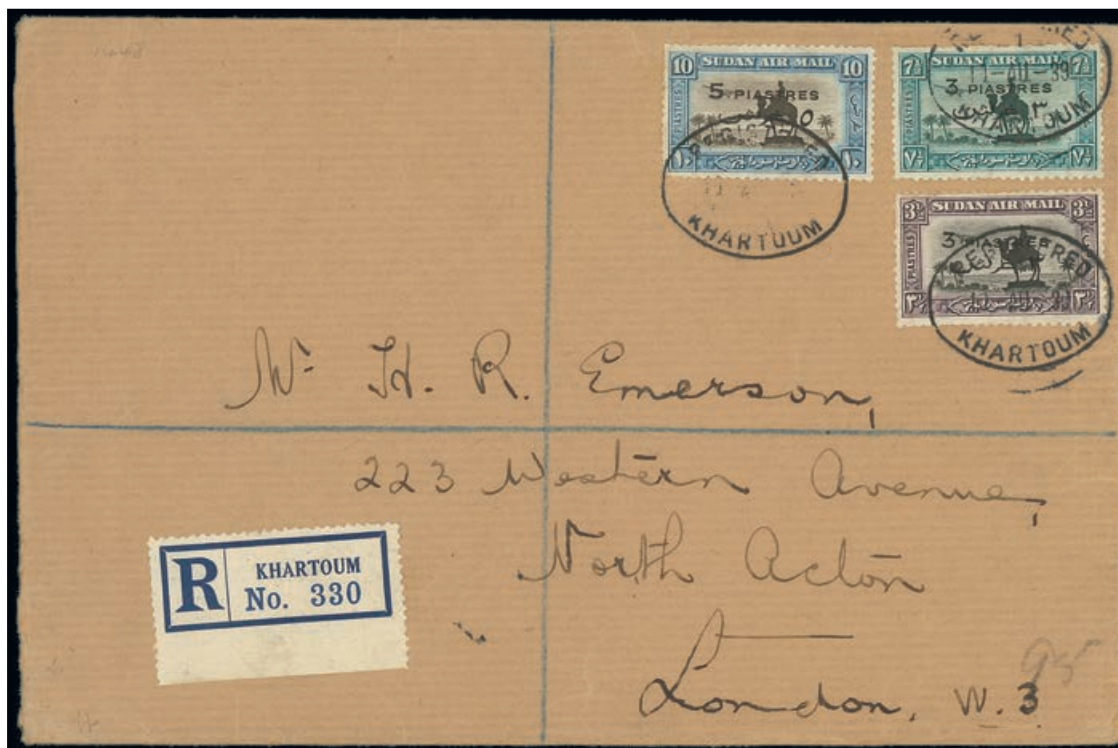 10 SUDAN AIR MAIL 10
5 PIASTRES
٥
PIASTRES
١٠ ١٠
REGISTERED
KHARTOUM
7½ SUDAN AIR MAIL 7½
3 PIASTRES
٣
PIASTRES
٧½ ٧½
11-AU-39
KHARTOUM
3½ SUDAN AIR MAIL 3½
3 PIASTRES
PIASTRES
٣½ ٣½
REGISTERED
11 AU 39
KHARTOUM
Mr H. R. Emerson,
223 Western Avenue,
North Acton
London, W. 3
R KHARTOUM
No. 330